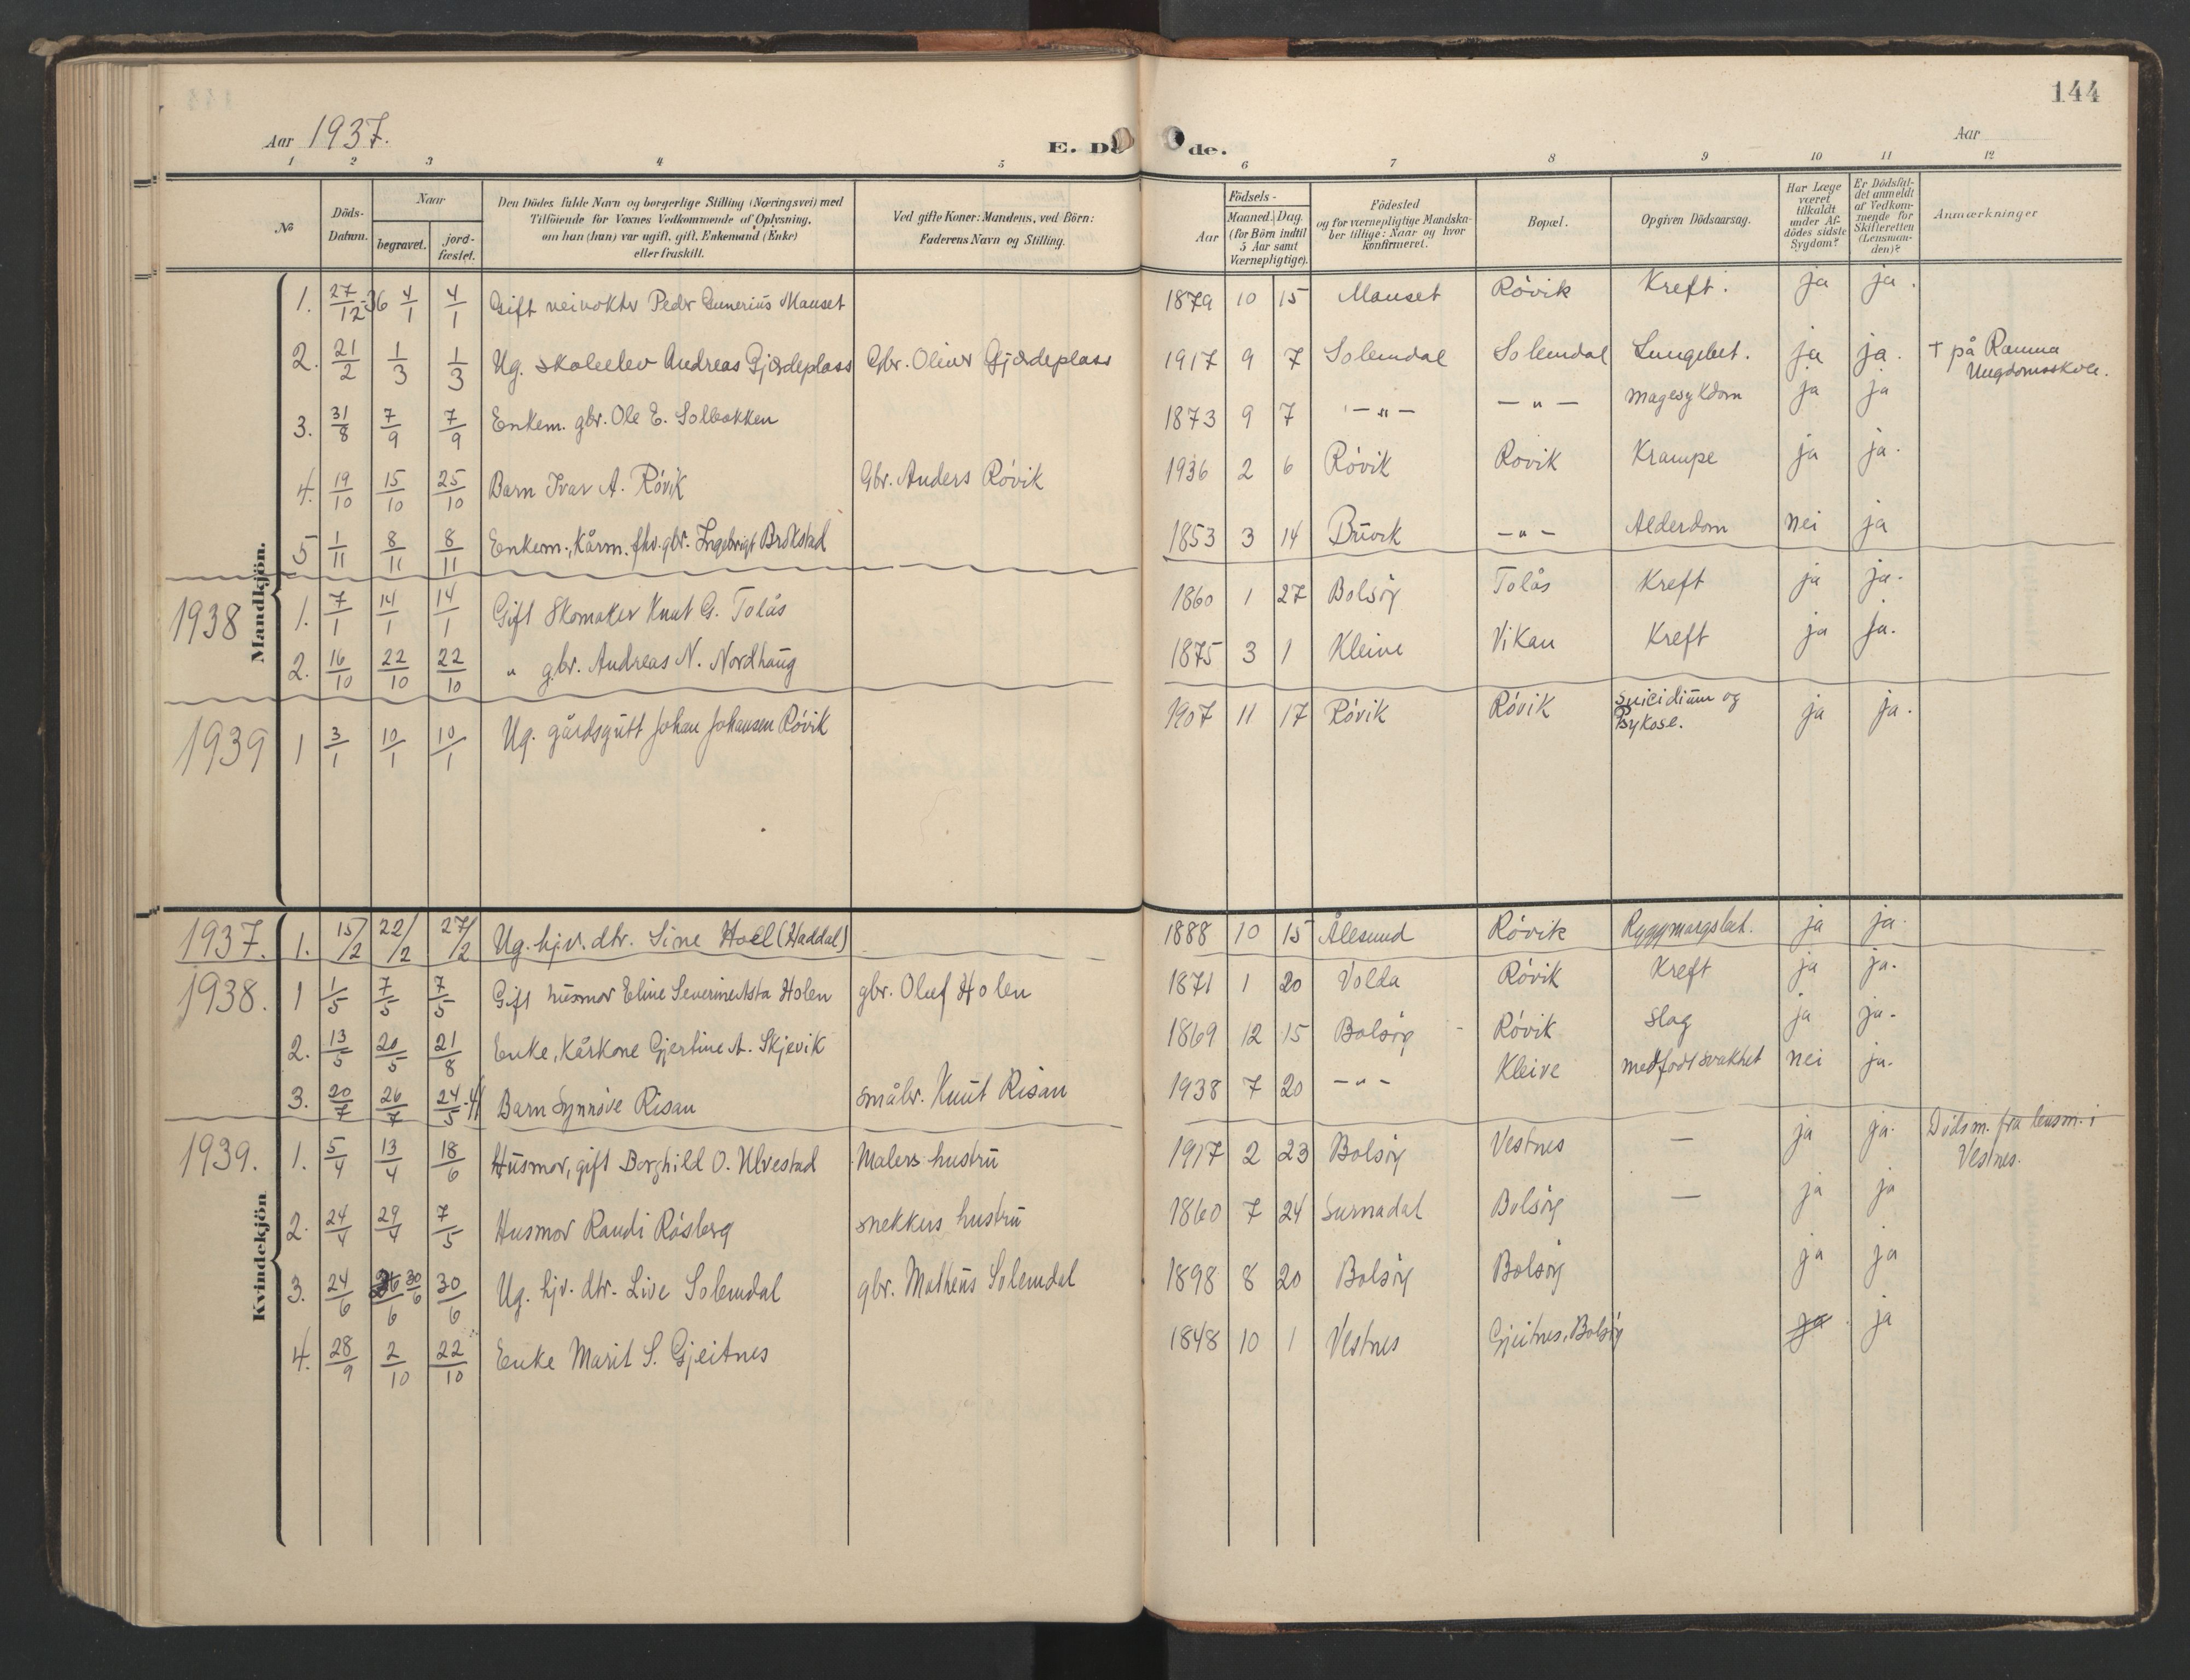 144
Aar 1937.
E. Dö de.
Aar
1 2 3 4 5 6 7 8 9 10 11 12
No
Döds-Datum.
Naar
begravet.
jord-fæstet.
Den Dödes fulde Navn og borgerlige Stilling (Næringsvei) med
Tilföiende for Voxnes Vedkommende af Oplysning,
om han (hun) var ugift, gift, Enkemand (Enke)
eller fraskilt.
Ved gifte Koner: Mandens, ved Börn:
Faderens Navn og Stilling.
Födsels-
Aar
Maaned. Dag.
(for Börn indtil
5 Aar samt
Værnepligtige).
Födested
og for værnepligtige Mandska-
ber tillige: Naar og hvor
konfirmeret.
Bopæl.
Opgiven Dödsaarsag.
Har Læge
været
tilkaldt
under Af-
dödes sidste
Sygdom?
Er Dödsfal-
det anmeldt
af Vedkom-
mende for
Skifteretten
(Lensman-
den)?
Anmærkninger
Mandkjön.
1. 27/12-36 4/1 4/1 Gift veivokter Peder Gunerius Mauset 1879 10 15 Mauset Róvik Kreft. ja ja.
2. 21/2 1/3 1/3 Ug. skoleelev Andreas Gjærdeplass Gbr. Oliver Gjærdeplass 1917 9 7 Solemdal Solemdal Lungebet. ja ja. † på Rauma
Ungdomsskole.
3. 31/8 7/9 7/9 Enkem. gbr. Ole E. Solbakken 1873 9 7 -"- -"- magesykdom ja ja
4. 19/10 15/10 25/10 Barn Ivar A. Róvik Gbr. Anders Róvik 1936 2 6 Róvik Rovik Krampe ja ja.
5 1/11 8/11 8/11 Enkem., kårm. fhv. gbr. Ingebrigt Brokstad 1853 3 14 -"- Alderdom nei ja
1938 1. 7/1 14/1 14/1 Gift Skomaker Knut G. Tolås 1860 1 27 Bolsöy Tolås Kreft ja ja.
2. 16/10 22/10 22/10 " gbr. Andreas N. Nordhaug 1875 3 1 Kleive Vikan Kreft ja ja.
1939 1 3/1 10/1 10/1 Ug. gårdsgutt Johan Johansen Róvik 1907 11 17 Róvik Róvik Suicidium og
Psykose. ja ja.
Kvindekjön
1937. 1. 15/2 22/2 27/2 Ug. hjv. dtr. Sine Hoel (Haddal) 1888 10 15 Ålesund Róvik Ryggmargslid. ja ja.
1938. 1 1/5 7/5 7/5 Gift husmor Eline Severine Asta Holen gbr. Oluf Holen 1871 1 20 Volda Róvik Kreft ja ja.
2. 13/5 20/5 21/8 Enke, kårkone Gjertine A. Skjevik 1869 12 15 Bolsöy Róvik Slag ja ja.
3. 20/7 26/7 24/5-41 Barn Synnöve Risan småbr. Knut Risan 1938 7 20 -"- Kleive medfödt svakhet nei ja.
1939. 1. 5/4 13/4 18/6 Husmor, gift Borghild O. Ulvestad Malers hustru 1917 2 23 Bolsöy Vestnes — ja ja. Dödsm. fra lensm. i
Vestnes.
2. 24/4 29/4 7/5 Husmor Randi Rösberg snekkers hustru 1860 7 24 Surnadal Bolsöy — ja ja
3. 24/6 26/6 30/6 30/6 Ug. hjv. dtr. Live Solemdal gbr. Matheus Solemdal 1898 8 20 Bolsöy Bolsöy ja ja
4. 28/9 2/10 22/10 Enke Marit S. Gjeitnes 1848 10 1 Vestnes Gjeitnes, Bolsöy ja ja